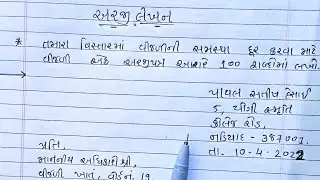 અરજી લેખન
* તમારા વિસ્તારમાં વીજળીની સમસ્યા દૂર કરવા માટે
વીજળી અંગે અરજીપત્ર આશરે ૧૦૦ શબ્દોમાં લખો.
પાયલ સતીષ દેસાઈ
5, યોગી સ્મૃતિ
કોલેજ રોડ,
નડિયાદ - 387001.
તા. 10-4-2022
પ્રતિ,
માનનીય અધિકારીશ્રી,
વીજળી ખાતું, વોર્ડનં. 19